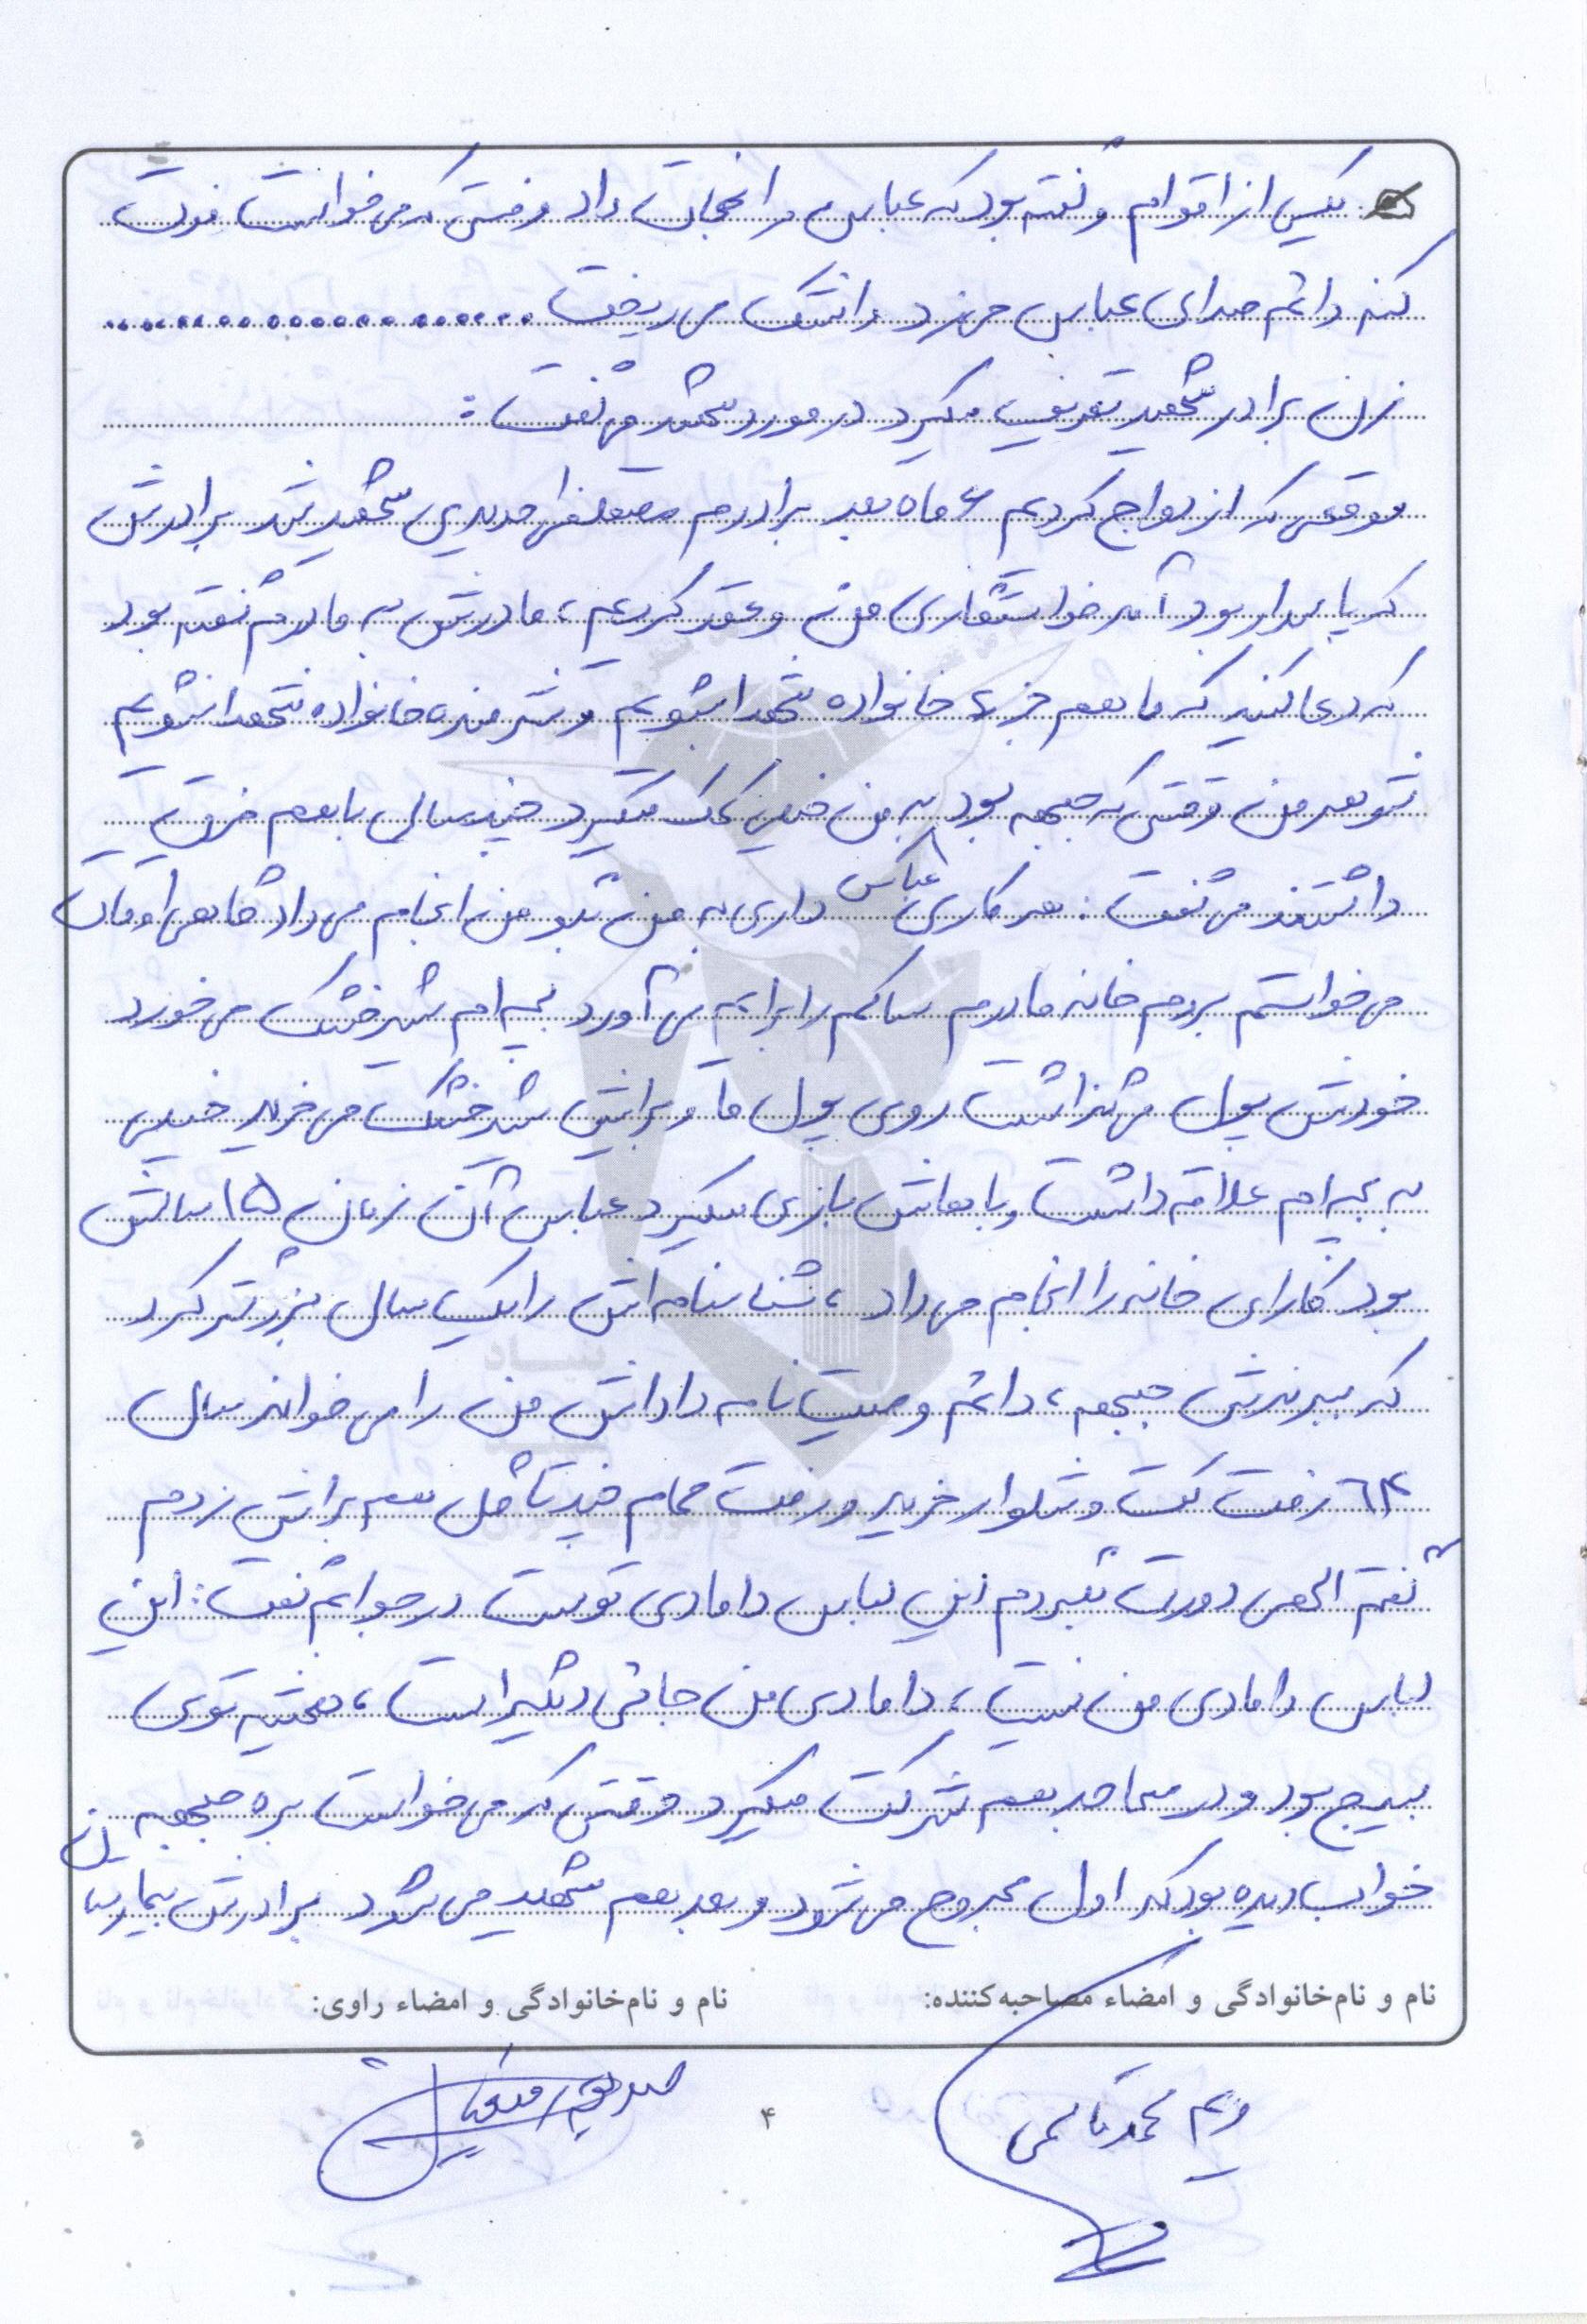 یکی از اقوام گفته بود که عباس مرا نجات داد وقتی که می خواست فوت
کند دائم صدای عباس می زد و اشک می ریخت
زن برادر شهید تعریف میکرد در مورد شهید می گفت :
موقعی که ازدواج کردیم ۶ ماه بعد برادرم مصطفی حدیدی شهید شد برادرش
که پاسدار بود آمد خواستگاری من و عقد کردیم ، مادرش به مادرم گفته بود
که دعا کنید که ما هم جزء خانواده شهدا بشویم و شرمنده خانواده شهدا نشویم
شوهر من وقتی که جبهه بود به من خیلی کمک میکرد چند سالی با هم فرق
داشتند می گفت : هر کاری عباس داری به من بگو من انجام می داد گاهی اوقات
می خواستم بروم خانه مادرم ساکم را برایم می آورد بچه ام شیر خشک می خورد
خودش پول می گذاشت روی پول ما و برایش شیر خشک می خرید خیلی
به بچه ام علاقه داشت و باهاش بازی میکرد عباس آن زمان ۱۵ سالش
بود کارای خانه را انجام می داد ، شناسنامه اش را یک سال بزرگتر کرد
که ببرندش جبهه ، دائم وصیت نامه داداش من را می خواند سال
۶۴ رفت کت و شلوار خرید و رفت حمام چند تا گل هم برایش زدم
گفتم الهی دورت بگردم این لباس دامادی توست در جوابم گفت : این
لباس دامادی من نیست ، دامادی من جائی دیگر است ، همیشه توی
بسیج بود و در مساجد هم شرکت میکرد وقتی که می خواست بره جبهه
خواب دیده بود که اول مجروح می شود و بعد هم شهید می شود برادرش بیمارستان
نام و نام‌خانوادگی و امضاء مصاحبه‌کننده: نام و نام‌خانوادگی و امضاء راوی:
۴